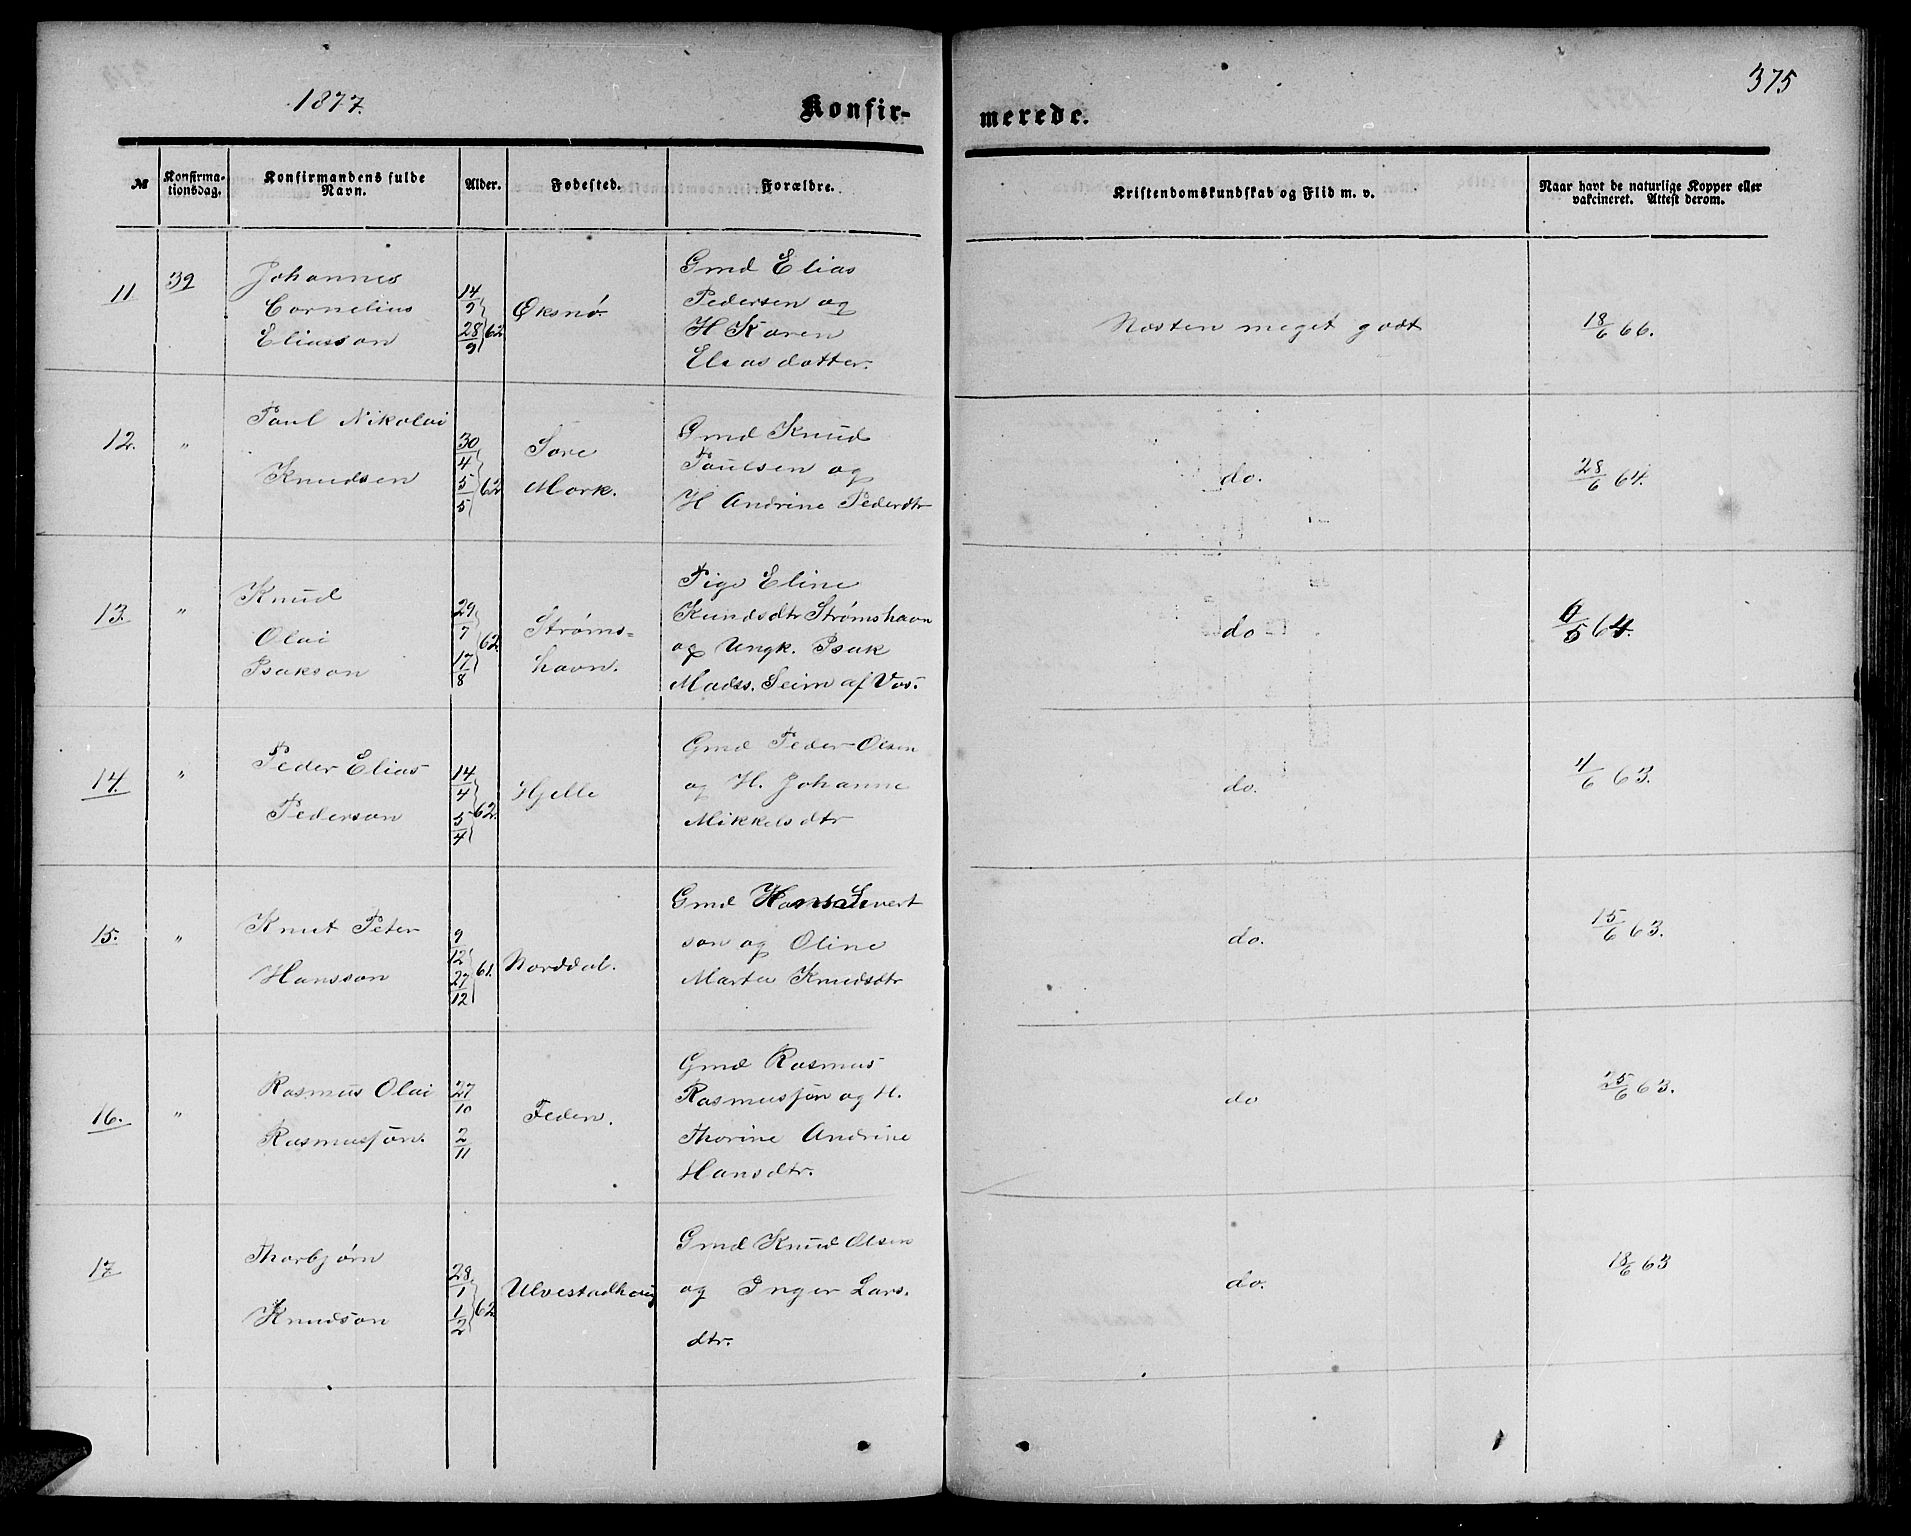 1877.
Konfir-
merede.
375
№
Konfirma-
tionsdag.
Konfirmandens fulde
Navn.
Alder.
Fødested.
Forældre.
Kristendomskundskab og Flid m. v.
Naar havt de naturlige Kopper eller
vakcineret. Attest derom.
11
Johannes
Cornelius
Eliasson
14/9 28/9 62
Øksnø.
Gmd Elias
Pedersen og
H Karen
Elias datter.
Næsten meget godt
18/6 66.
12.
"
Paul Nikolai
Knudsen
30/4 5/5 62
Søre
Mork.
Gmd Knud
Paulsen og
H Andrine Pederdtr
do.
28/6 64.
13.
"
Knud
Olai
Isakson
29/7 17/8 62
Strøms=
havn.
Pige Eline
Kundsdtr Strømshavn
og Ungk. Isak
Madss. Seim af Vos.
do
6/5 64.
14.
"
Peder Elias
Pederson
14/4 5/4 62.
Hjelle
Gmd Peder Olsen
og H. Johanne
Mikkelsdtr
do.
4/6 63.
15.
"
Knut Peter
Hansson
9/12 27/12 61.
Norddal.
Gmd Hans Sivert
son og Oline
Martea Knudsdtr
do.
15/6 63.
16.
"
Rasmus Olai
Rasmussøn.
27/10 2/11
Feden.
Gmd Rasmus
Rasmussøn og H.
Thorine Andrine
Hansdtr.
do
25/6 63.
17
Thorbjørn
Knudson
28/1 1/2 62
Ulvestadhaug
Gmd Knud Olsen
og Inger Lars.
dtr.
do.
18/6 63